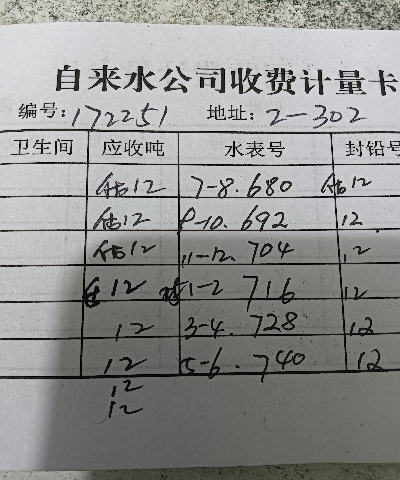 自来水公司收费计量卡
编号:172251 地址:2-302
卫生间 应收吨 水表号 封铅号
估12 7-8.680 估12
估12 9-10.692 12
估12 11-12.704 12
12 1-2 716 12
12 3-4.728 12
12 5-6.740 12
12
12